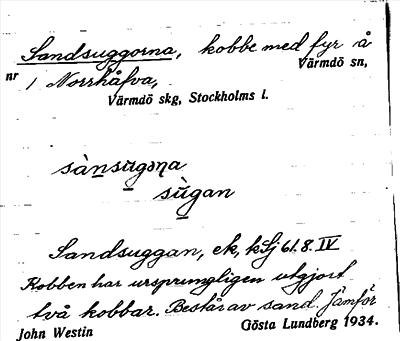 Sandsuggorna, kobbe med fyr å
Värmdö sn,
nr 1 Norrhåfva,
Värmdö skg, Stockholms l.
sàn̲su̲gəɳa
sù̲gan
Sandsuggan, ek, kSj 61.8. IV
Kobben har ursprungligen utgjort
två kobbar. Består av sand. Jämför
John Westin Gösta Lundberg 1934.